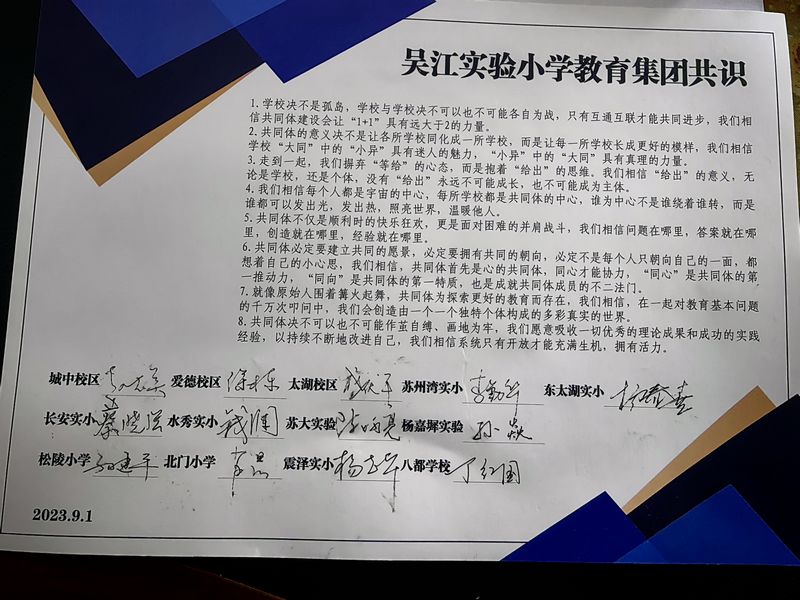 吴江实验小学教育集团共识
1. 学校决不是孤岛，学校与学校决不可以也不可能各自为战，只有互通互联才能共同进步，我们相
信共同体建设会让“1+1”具有远大于2的力量。
2. 共同体的意义决不是让各所学校同化成一所学校，而是让每一所学校长成更好的模样，我们相信
学校“大同”中的“小异”具有迷人的魅力，“小异”中的“大同”具有真理的力量。
3. 走到一起，我们摒弃“等给”的心态，而是抱着“给出”的思维。我们相信“给出”的意义，无
论是学校，还是个体，没有“给出”永远不可能成长，也不可能成为主体。
4. 我们相信每个人都是宇宙的中心，每所学校都是共同体的中心，谁为中心不是谁绕着谁转，而是
谁都可以发出光，发出热，照亮世界，温暖他人。
5. 共同体不仅是顺利时的快乐狂欢，更是面对困难的并肩战斗，我们相信问题在哪里，答案就在哪
里，创造就在哪里，经验就在哪里。
6. 共同体必定要建立共同的愿景，必定要拥有共同的朝向，必定不是每个人只朝向自己的一面，都
想着自己的小心思，我们相信，共同体首先是心的共同体，同心才能协力，“同心”是共同体的第
一推动力，“同向”是共同体的第一特质，也是成就共同体成员的不二法门。
7. 就像原始人围着篝火起舞，共同体为探索更好的教育而存在，我们相信，在一起对教育基本问题
的千万次叩问中，我们会创造由一个一个独特个体构成的多彩真实的世界。
8. 共同体决不可以也不可能作茧自缚、画地为牢，我们愿意吸收一切优秀的理论成果和成功的实践
经验，以持续不断地改进自己，我们相信系统只有开放才能充满生机，拥有活力。
城中校区 爱德校区 太湖校区 苏州湾实小 李勤华 东太湖实小
长安实小 蔡晓洪 水秀实小 钱润 苏大实验 陈明亮 杨嘉墀实验 孙焱
松陵小学 北门小学 常晶 震泽实小 杨志华 八都学校 丁红国
2023.9.1